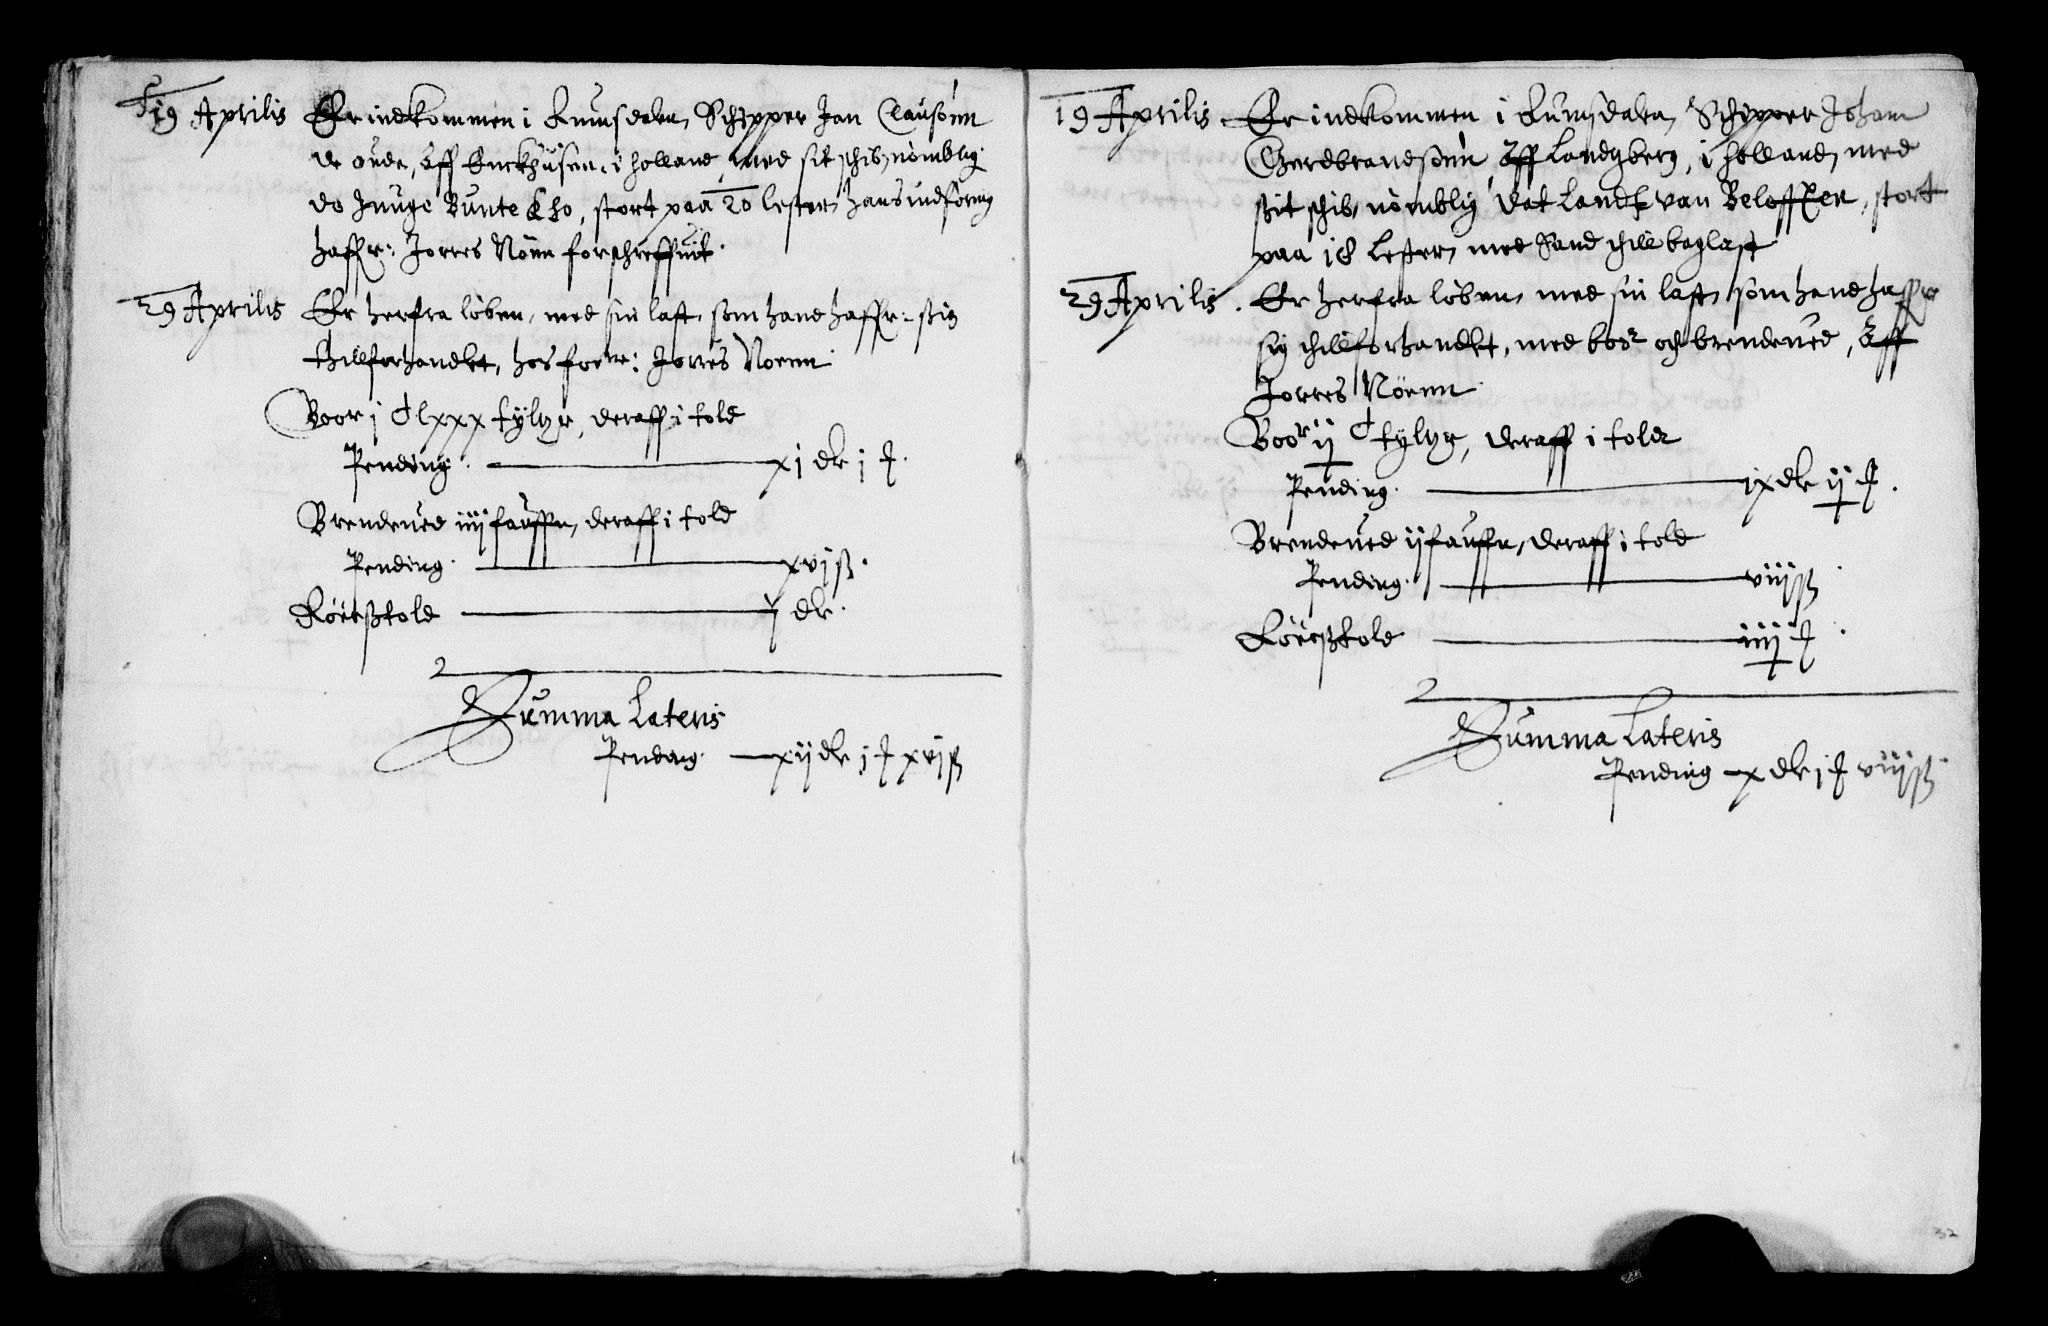 19 Aprilis Er indkommen i Rumsdalen, Schipper Jan Clausønn
de oude, Aff Enckhüsen, i Holland, med sit schib, nömblig
de Junge Bunte Kho, stort paa 20 lester, hans indföring
haffr: Jorres Nönn forschreffuit.
29 Aprilis Er herfra löben, med sin last, som hand haffr: ßig
thillforhandlet, hos forne: Jorres Noenn
Boor j C lxxx tylgr, deraff i told
Pending. xj dlr j ɟ.
Brendeued iiij fauffn, deraff i told
Pending. xvj ß.
Röerßtold j dlr.
Summa Lateris
Pending. xij dlr j ɟ xvj ß
19 Aprilis. Er indkommen i Rumsdalen, Schipper Johann
Gerdbrandsönn, Aff Landzberg, i Holland, med
ßit schib, nömblig Dat Landt van Belofften, stort
paa 18 Lester, med Sand thill baglast
29 Aprilis. Er herfra löben, med sin last, som hand haffr
sig thillforhandlet, med boer och brendeued, Aff
Jorres Nöenn
Boor ij C tylgr, deraff i told
Pending. ix dlr ij ɟ.
Brendeued ij fauffn, deraff i told
Pending. viij ß
Röerßtold iiij ɟ.
Summa Lateris
Pending x dlr j ɟ viij ß
32